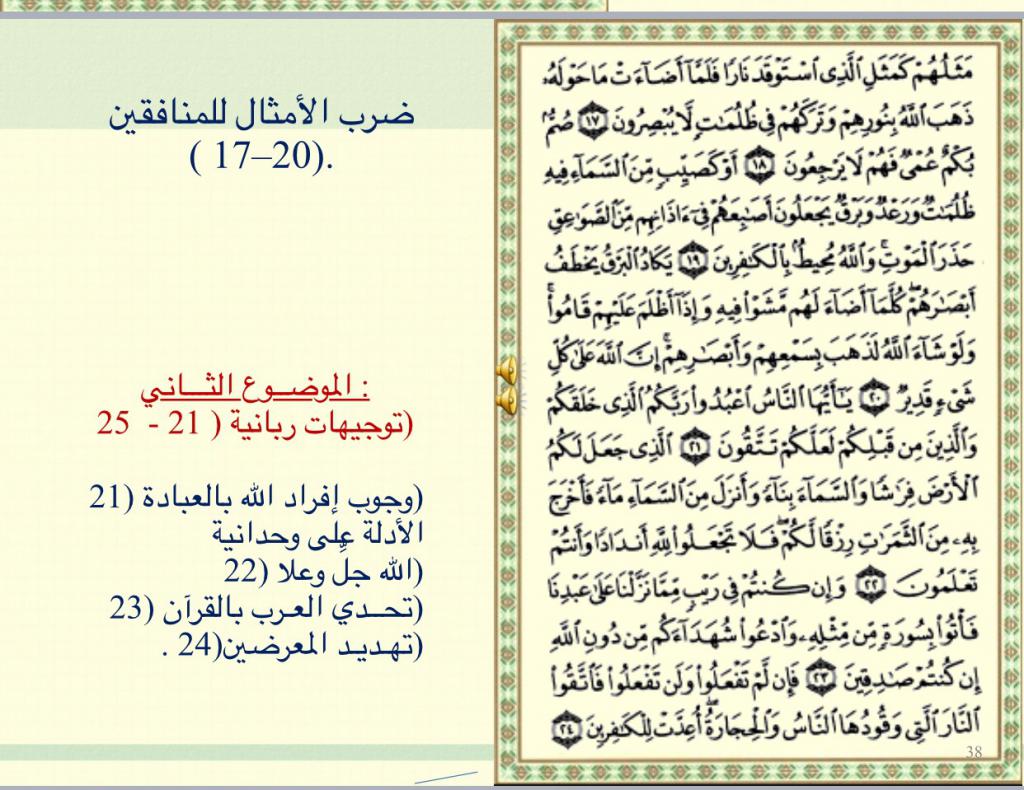 مَثَلُهُمْ كَمَثَلِ ٱلَّذِى ٱسْتَوْقَدَ نَارًا فَلَمَّآ أَضَآءَتْ مَا حَوْلَهُۥ
ذَهَبَ ٱللَّهُ بِنُورِهِمْ وَتَرَكَهُمْ فِى ظُلُمَٰتٍ لَّا يُبْصِرُونَ ١٧ صُمٌّۢ
بُكْمٌ عُمْىٌ فَهُمْ لَا يَرْجِعُونَ ١٨ أَوْ كَصَيِّبٍ مِّنَ ٱلسَّمَآءِ فِيهِ
ظُلُمَٰتٌ وَرَعْدٌ وَبَرْقٌ يَجْعَلُونَ أَصَٰبِعَهُمْ فِىٓ ءَاذَانِهِم مِّنَ ٱلصَّوَٰعِقِ
حَذَرَ ٱلْمَوْتِ ۚ وَٱللَّهُ مُحِيطٌۢ بِٱلْكَٰفِرِينَ ١٩ يَكَادُ ٱلْبَرْقُ يَخْطَفُ
أَبْصَٰرَهُمْ ۖ كُلَّمَآ أَضَآءَ لَهُم مَّشَوْا۟ فِيهِ وَإِذَآ أَظْلَمَ عَلَيْهِمْ قَامُوا۟ ۚ
وَلَوْ شَآءَ ٱللَّهُ لَذَهَبَ بِسَمْعِهِمْ وَأَبْصَٰرِهِمْ ۚ إِنَّ ٱللَّهَ عَلَىٰ كُلِّ
شَىْءٍ قَدِيرٌ ٢٠ يَٰٓأَيُّهَا ٱلنَّاسُ ٱعْبُدُوا۟ رَبَّكُمُ ٱلَّذِى خَلَقَكُمْ
وَٱلَّذِينَ مِن قَبْلِكُمْ لَعَلَّكُمْ تَتَّقُونَ ٢١ ٱلَّذِى جَعَلَ لَكُمُ
ٱلْأَرْضَ فِرَٰشًا وَٱلسَّمَآءَ بِنَآءً وَأَنزَلَ مِنَ ٱلسَّمَآءِ مَآءً فَأَخْرَجَ
بِهِۦ مِنَ ٱلثَّمَرَٰتِ رِزْقًا لَّكُمْ ۖ فَلَا تَجْعَلُوا۟ لِلَّهِ أَندَادًا وَأَنتُمْ
تَعْلَمُونَ ٢٢ وَإِن كُنتُمْ فِى رَيْبٍ مِّمَّا نَزَّلْنَا عَلَىٰ عَبْدِنَا
فَأْتُوا۟ بِسُورَةٍ مِّن مِّثْلِهِۦ وَٱدْعُوا۟ شُهَدَآءَكُم مِّن دُونِ ٱللَّهِ
إِن كُنتُمْ صَٰدِقِينَ ٢٣ فَإِن لَّمْ تَفْعَلُوا۟ وَلَن تَفْعَلُوا۟ فَٱتَّقُوا۟
ٱلنَّارَ ٱلَّتِى وَقُودُهَا ٱلنَّاسُ وَٱلْحِجَارَةُ ۖ أُعِدَّتْ لِلْكَٰفِرِينَ ٢٤
38
ضرب الأمثال للمنافقين
.(17–20 )
: الموضوع الثاني
(توجيهات ربانية ( 21 - 25
(وجوب إفراد الله بالعبادة (21
الأدلة على وحدانية
(الله جلّ وعلا (22
(تحدي العرب بالقرآن (23
(تهديد المعرضين(24 .